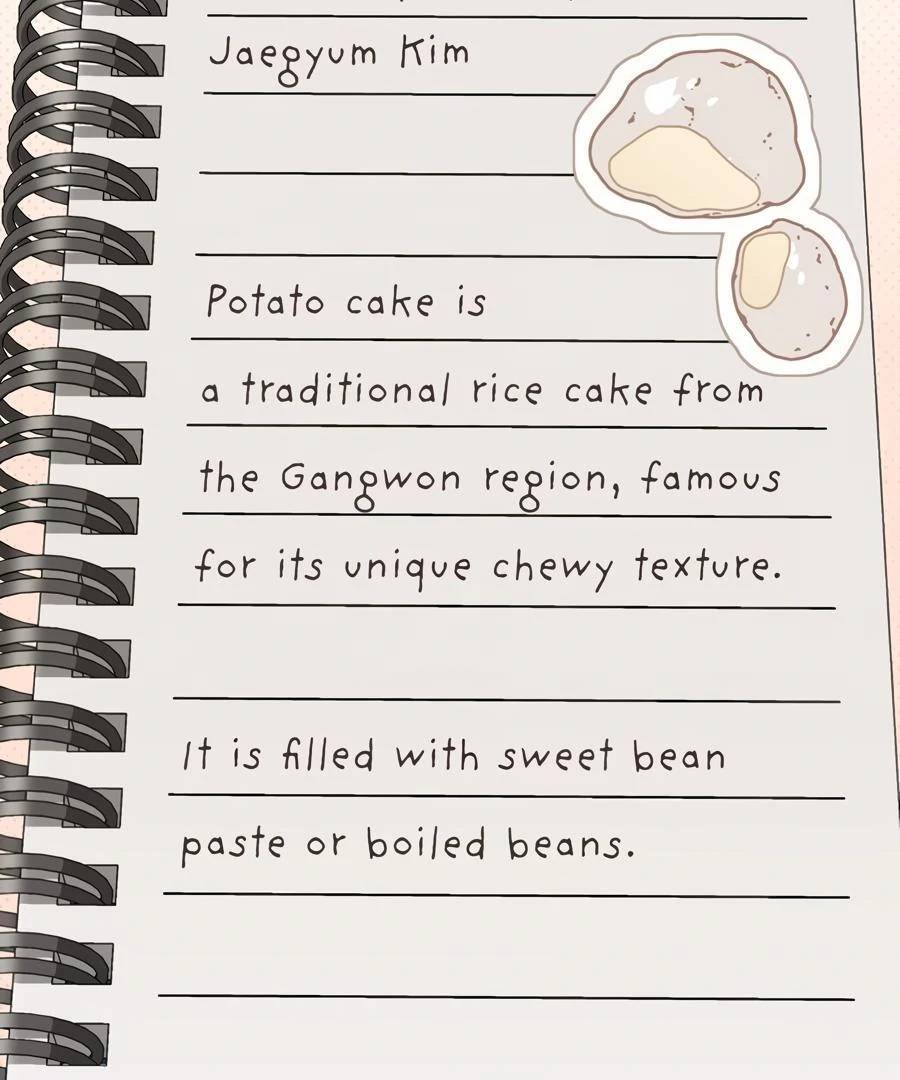 Jaegyum Kim
Potato cake is
a traditional rice cake from
the Gangwon region, famous
for its unique chewy texture.
It is filled with sweet bean
paste or boiled beans.